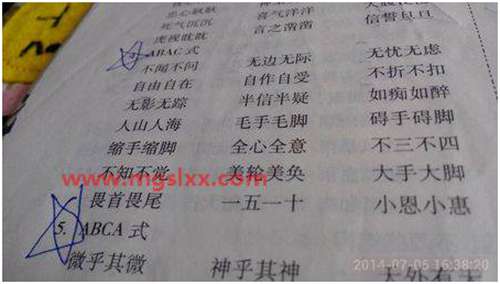 死气沉沉 喜气洋洋 信誓旦旦
虎视眈眈 言之凿凿
ABAC 式
不闻不问 无边无际 无忧无虑
自由自在 自作自受 不折不扣
无影无踪 半信半疑 如痴如醉
人山人海 毛手毛脚 碍手碍脚
缩手缩脚 全心全意 不三不四
不知不觉 美轮美奂 大手大脚
www.mgslxx.com
畏首畏尾 一五一十 小恩小惠
5. ABCA 式
2014-07-05 16:38:20
微乎其微 神乎其神 天外有天